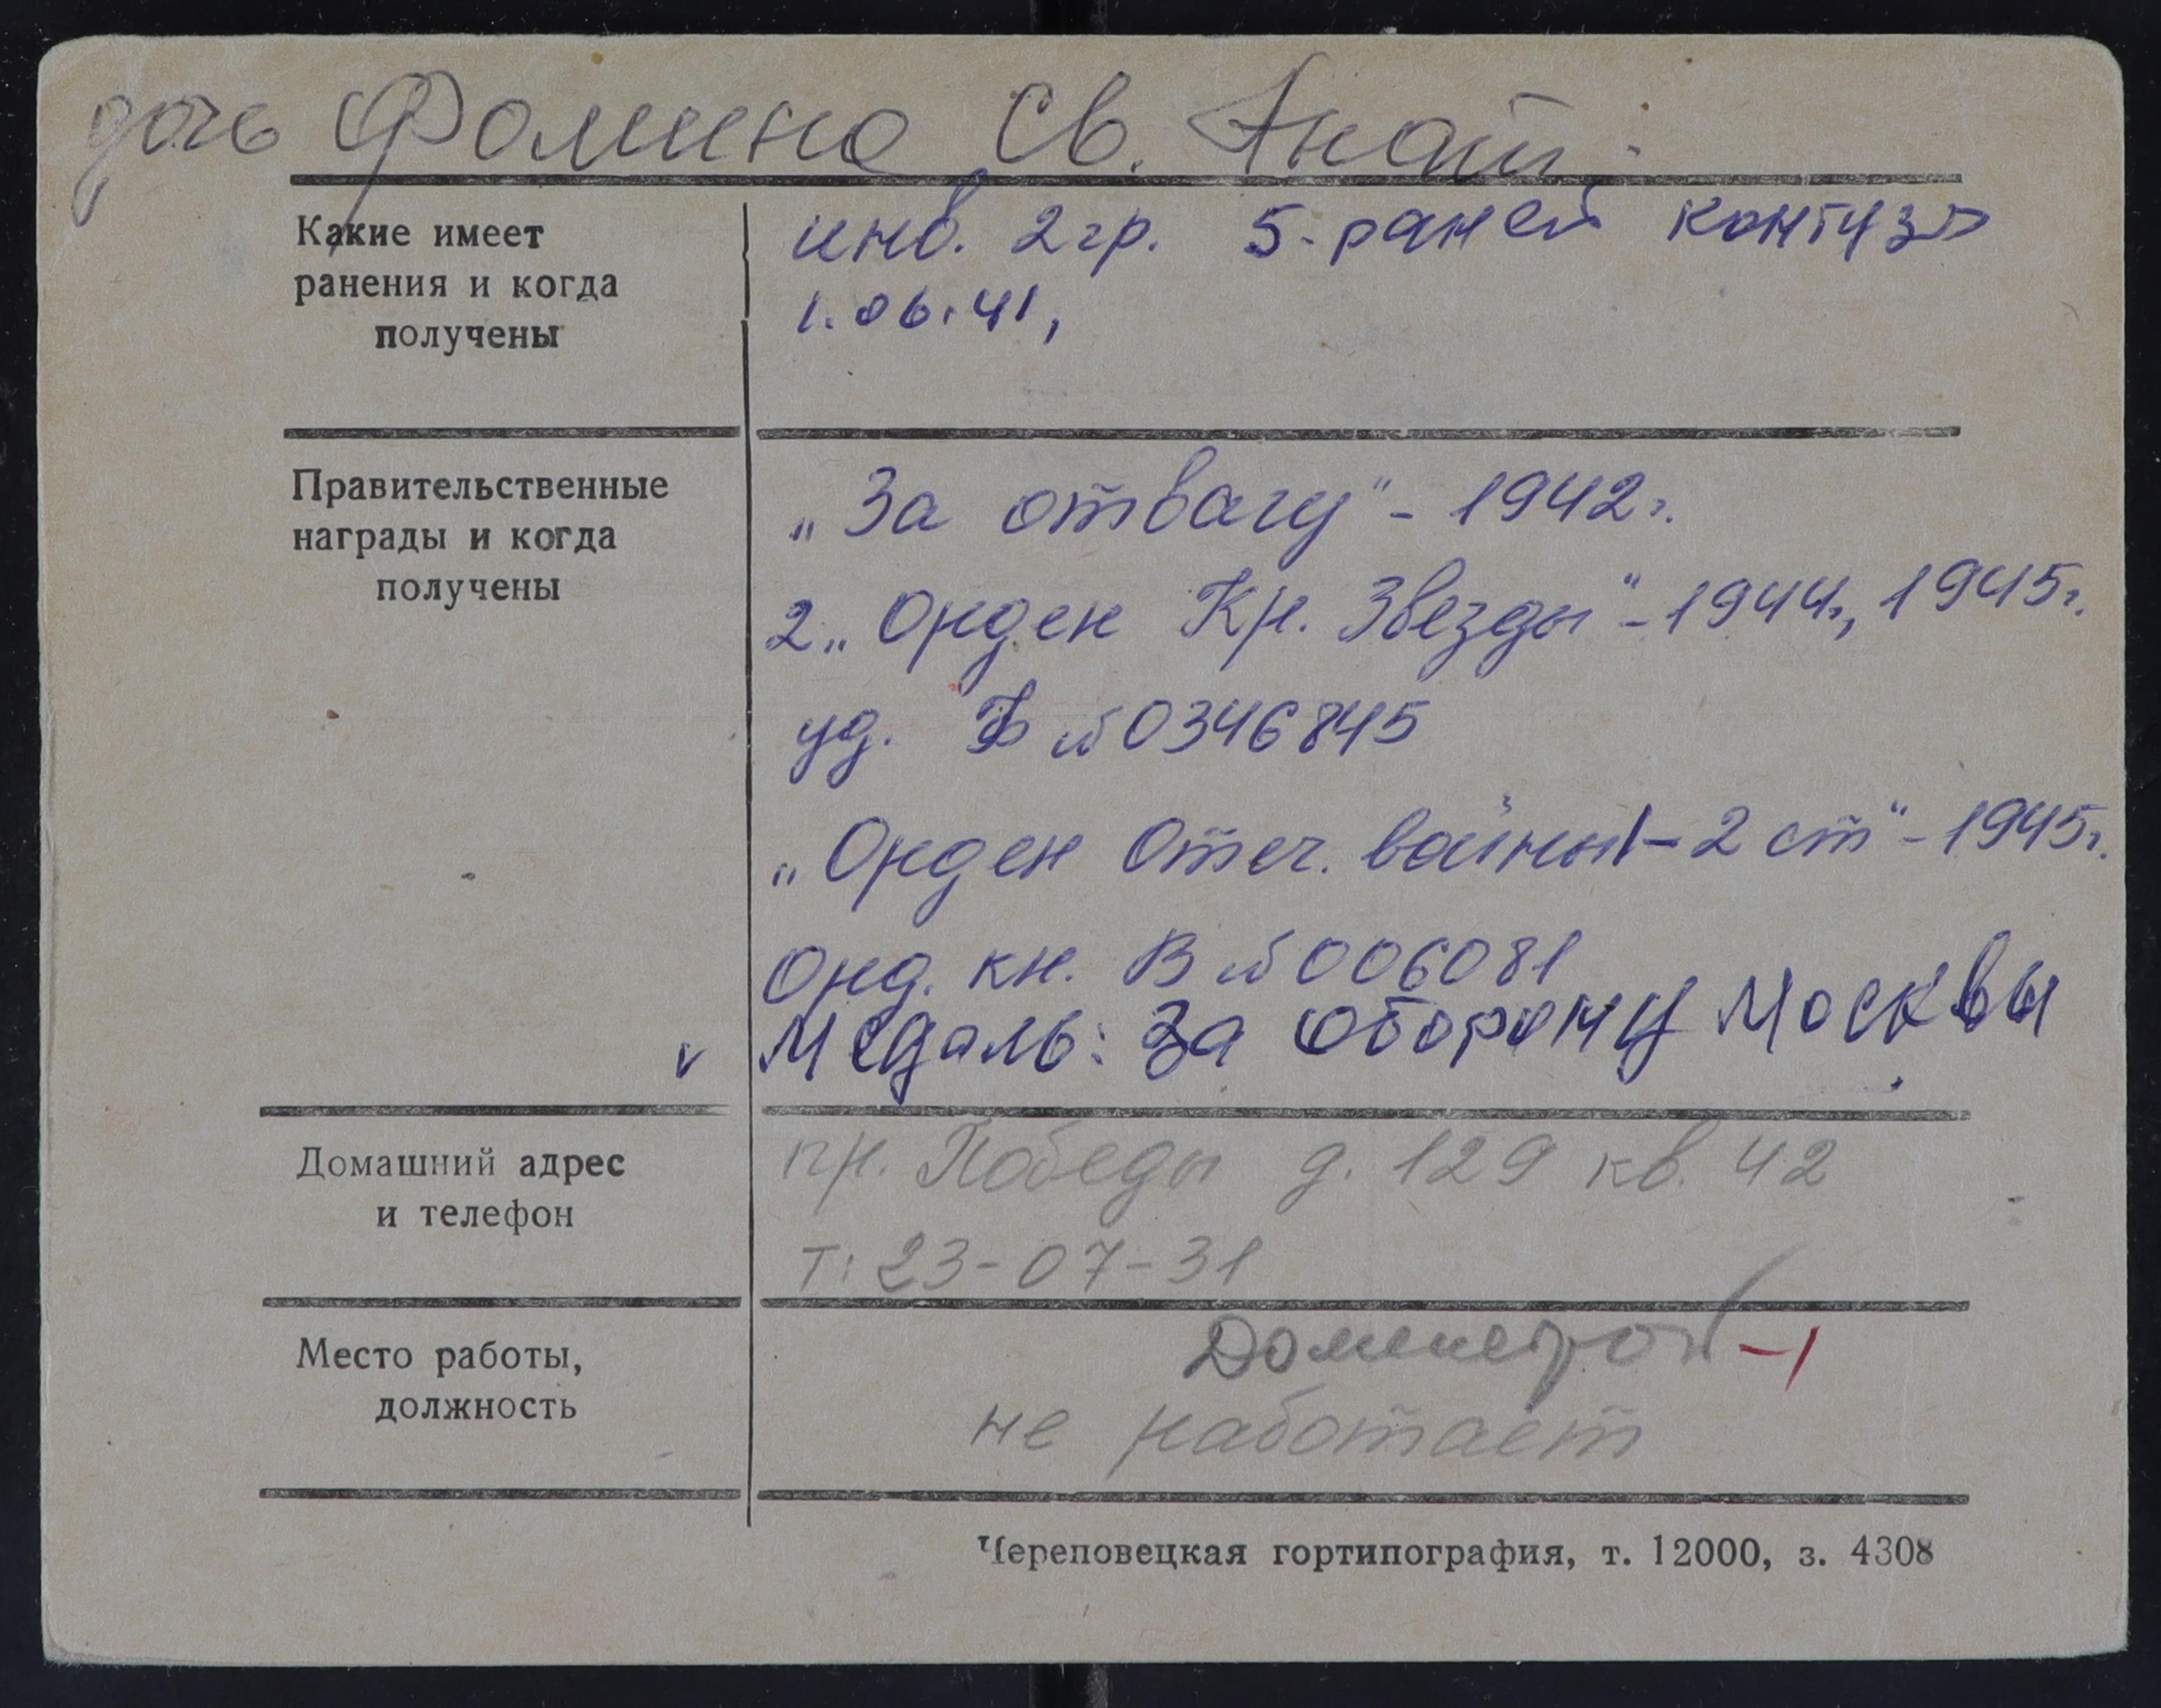 дочь Фомина Св. Анат.
Какие имеет
ранения и когда
получены
инв. 2 гр. 5-ранен контуз
1.06.41,
Правительственные
награды и когда
получены
„За отвагу" - 1942г.
2 „Орден Кр. Звезды" - 1944г., 1945г.
уд. №0346845
„Орден Отеч. войны - 2 ст" - 1945г.
Орд. кн. В №006081
v Медаль: За оборону Москвы
Домашний адрес
и телефон
пр. Победы д. 129 кв. 42
т: 23-07-31
Место работы,
должность
-1
не работает
Череповецкая гортипография, т. 12000, з. 4308